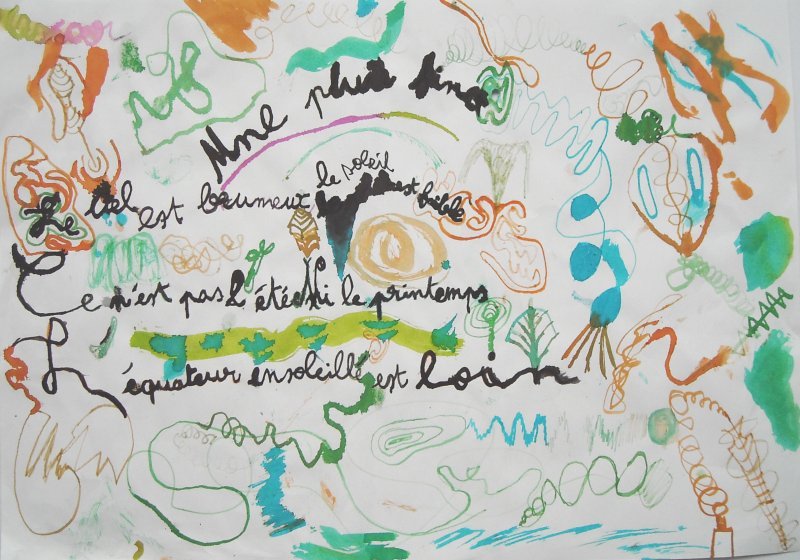 Une pluie fine
Le ciel est brumeux le soleil est
Ce n'est pas L'été ni le printemps
L'équateur ensoleillé est loin